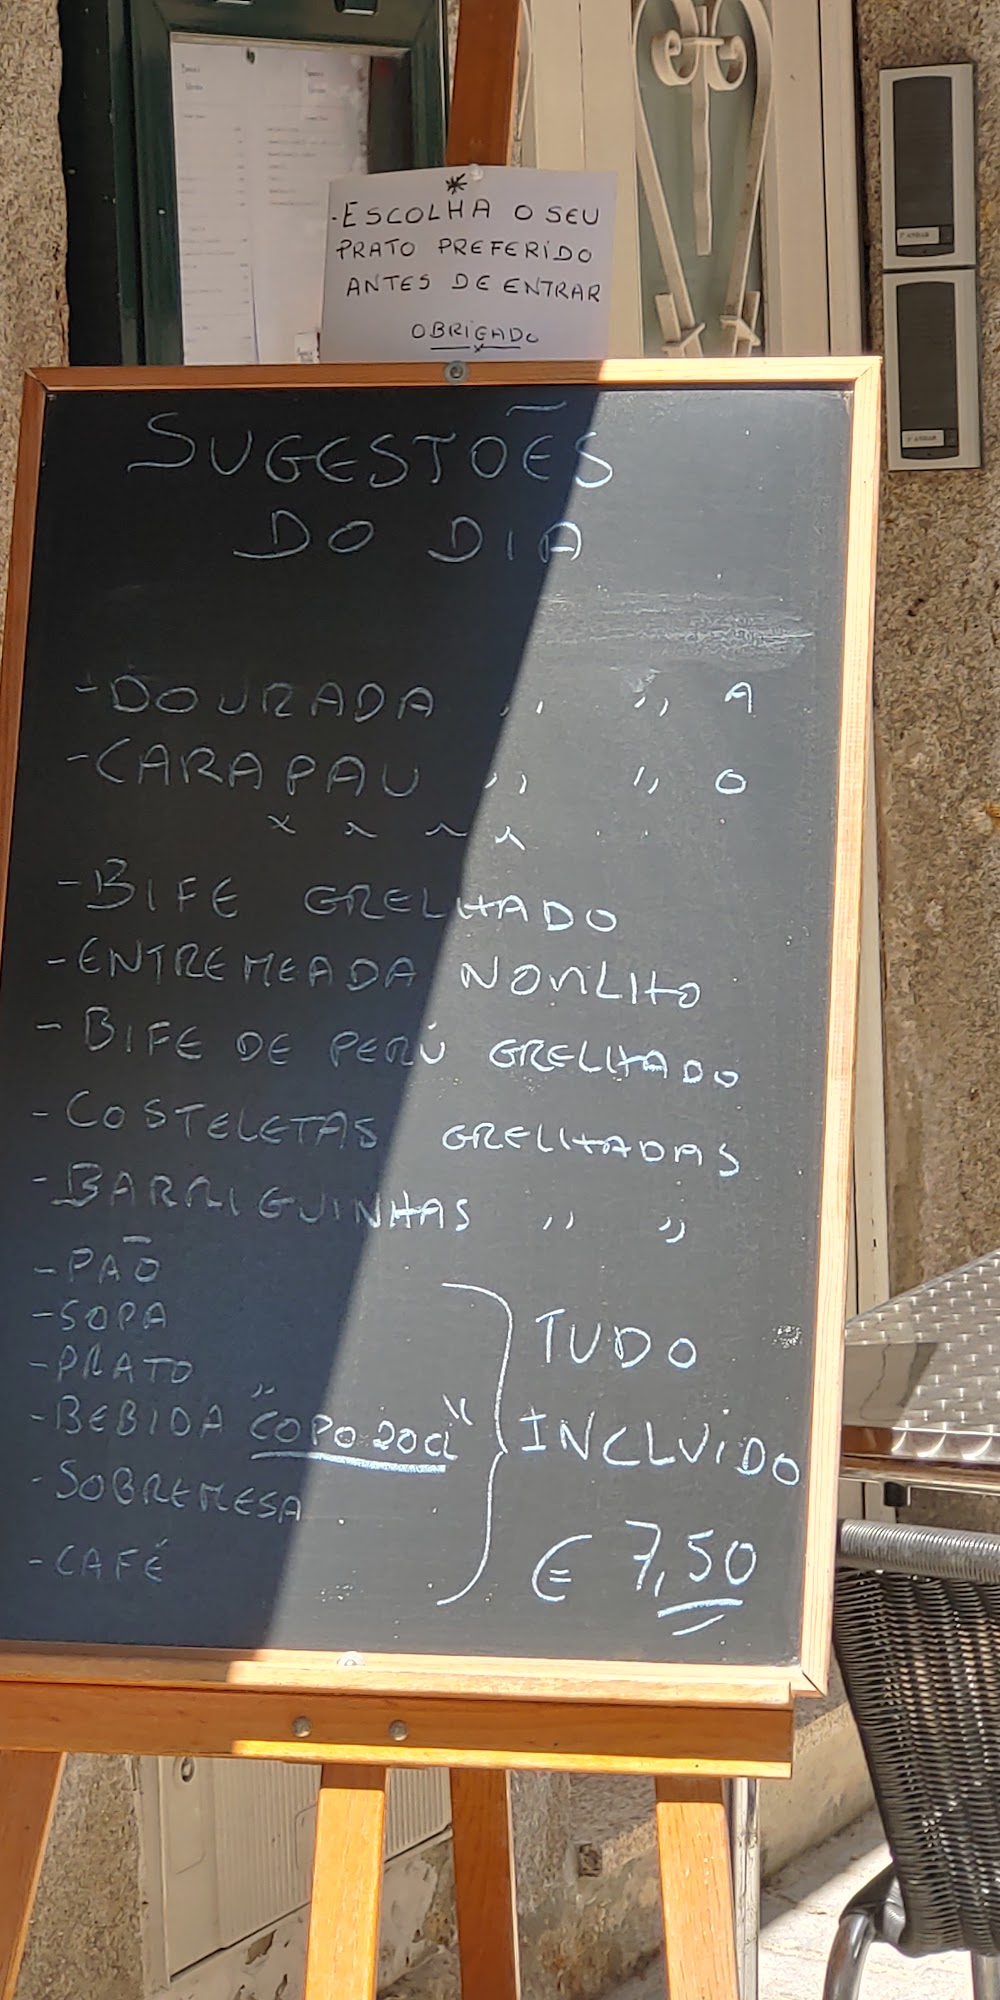 *
-ESCOLHA O SEU
PRATO PREFERIDO
ANTES DE ENTRAR
OBRIGADO
SUGESTÕES
DO DIA
-DOURADA ,, ,, A
-CARAPAU ,, ,, O
-BIFE GRELHADO
-ENTREMEADA NO MILHO
-BIFE DE PERÚ GRELHADO
-COSTELETAS GRELHADAS
-BARRIGUINHAS ,, ,,
-PÃO
-SOPA
-PRATO
-BEBIDA "COPO 20CL"
-SOBREMESA
-CAFÉ
TUDO
INCLUIDO
€ 7,50